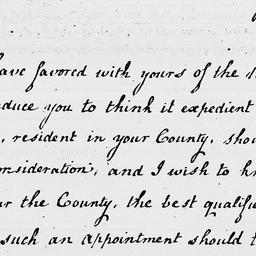 ave favored with yours of the
duce you to think it expedient
, resident in your County, shou
onsideration, and I wish to kn
ur the County, the best qualifie
such an appointment should t